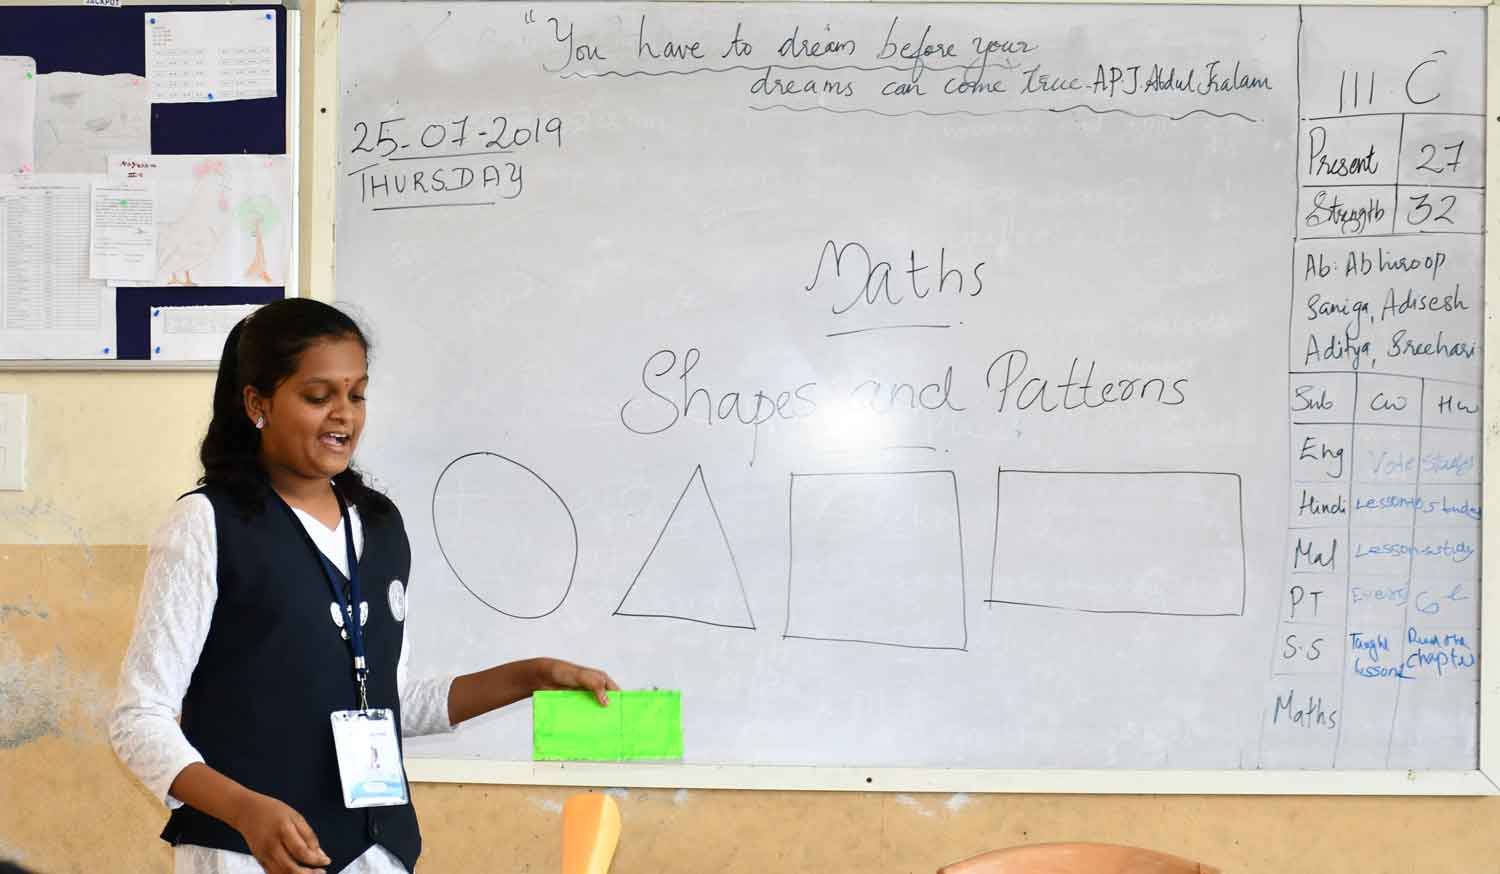 JACKPOT
"You have to dream before your
dreams can come true - A.P.J. Abdul Kalam
25-07-2019
THURSDAY
Maths
Shapes and Patterns
III C
Present 27
Strength 32
Ab: Abhiroop
Saniga, Adisesh
Aditya, Sreehari
Sub CW HW
Eng Vote
Hindi Lesson
Mal Lesson-study
PT
S.S Taught lesson Read the chapter
Maths